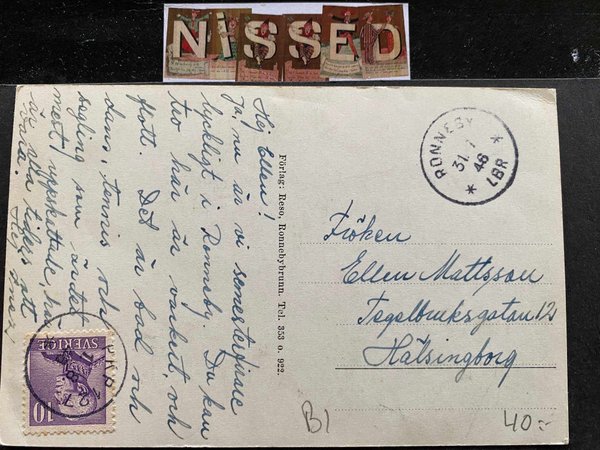 NISSED
Hej Ellen!
Ja, nu är vi semesterfirare
lyckligt i Ronneby. Du kan
tro här är vackert, och
flott. Det är bad och
dans, tennis och
segling som är det
mest uppskattade, har
av våra tiders att
vara.
Förlag: Reso, Ronnebybrunn. Tel. 353 o. 922.
RONNEBY
31. 7
46
* LBR *
Fröken
Ellen Mattsson
Tegelbruksgatan 12
Hälsingborg
SVERIGE
10
B1
40:-